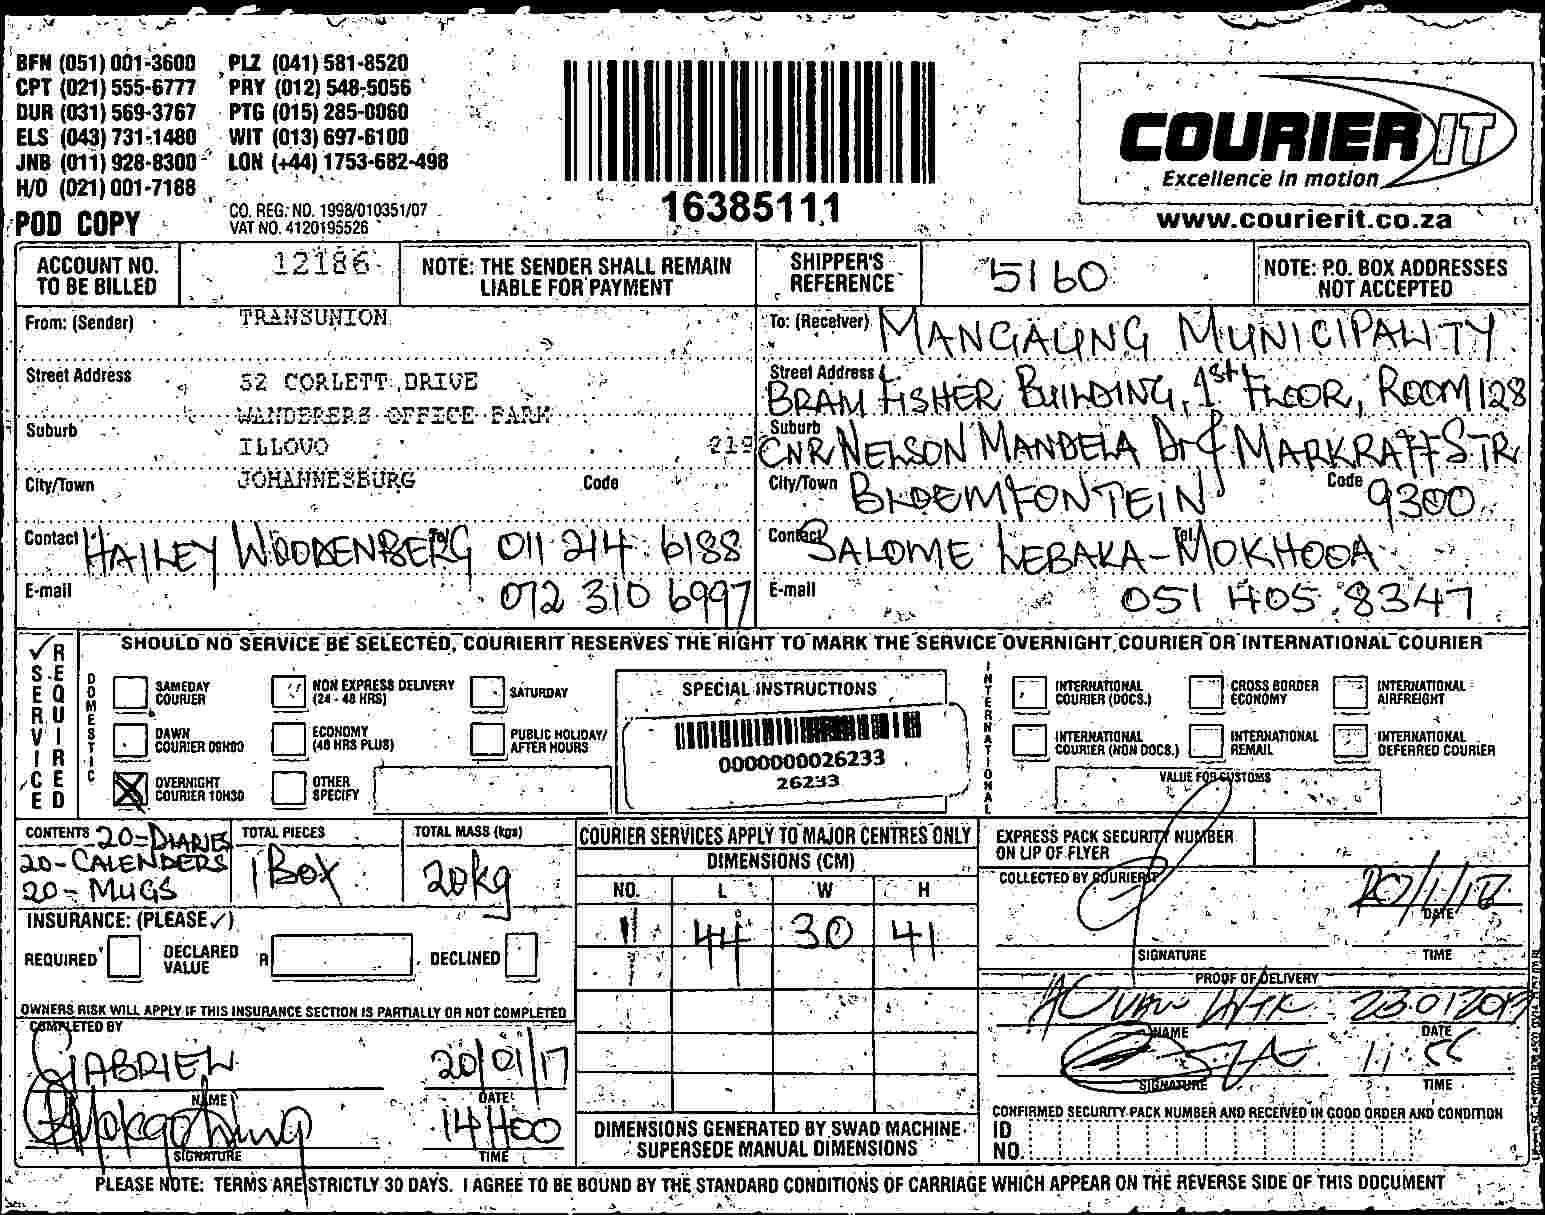 BFN (051) 001-3600 PLZ (041) 581-8520
CPT (021) 555-6777 PRY (012) 548-5056
DUR (031) 569-3767 PTG (015) 285-0060
ELS (043) 731-1480 WIT (013) 697-6100
JNB (011) 928-8300 LON (+44) 1753-682-498
H/O (021) 001-7188
POD COPY
CO. REG. NO. 1998/010351/07
VAT NO. 4120195526
16385111
COURIER IT
Excellence in motion
www.courierit.co.za
ACCOUNT NO. TO BE BILLED
12186
NOTE: THE SENDER SHALL REMAIN LIABLE FOR PAYMENT
SHIPPER'S REFERENCE
5160
NOTE: P.O. BOX ADDRESSES NOT ACCEPTED
From: (Sender) TRANSUNION
Street Address 52 CORLETT DRIVE
WANDERERS OFFICE PARK
Suburb ILLOVO
City/Town JOHANNESBURG Code
Contact HAILEY WOODENBERG 011 214 6188
E-mail 072 310 6997
To: (Receiver) MANGAUNG MUNICIPALITY
Street Address BRAM FISHER BUILDING, 1st FLOOR, ROOM 128
Suburb CNR NELSON MANDELA Dr & MARKRAFF STR
City/Town BLOEMFONTEIN Code 9300
Contact SALOME LEBAKA-MOKHOOA Tel.
E-mail 051 405 8347
SERVICE REQUIRED
SHOULD NO SERVICE BE SELECTED, COURIERIT RESERVES THE RIGHT TO MARK THE SERVICE OVERNIGHT COURIER OR INTERNATIONAL COURIER
DOMESTIC
SAMEDAY COURIER
NON EXPRESS DELIVERY (24 - 48 HRS)
SATURDAY
DAWN COURIER 09H00
ECONOMY (48 HRS PLUS)
PUBLIC HOLIDAY/ AFTER HOURS
OVERNIGHT COURIER 10H30
OTHER SPECIFY
SPECIAL INSTRUCTIONS
0000000026233
26233
INTERNATIONAL
INTERNATIONAL COURIER (DOCS.)
CROSS BORDER ECONOMY
INTERNATIONAL AIRFREIGHT
INTERNATIONAL COURIER (NON DOCS.)
INTERNATIONAL REMAIL
INTERNATIONAL DEFERRED COURIER
VALUE FOR CUSTOMS
CONTENTS 20-DIARIES
20-CALENDERS
20-MUGS
TOTAL PIECES
1 Box
TOTAL MASS (kgs)
20kg
INSURANCE: (PLEASE ✓)
REQUIRED DECLARED VALUE R DECLINED
OWNERS RISK WILL APPLY IF THIS INSURANCE SECTION IS PARTIALLY OR NOT COMPLETED
COMPLETED BY
GABRIEL 20/01/17
NAME DATE
14H00
SIGNATURE TIME
COURIER SERVICES APPLY TO MAJOR CENTRES ONLY
DIMENSIONS (CM)
NO. L W H
1 44 30 41
DIMENSIONS GENERATED BY SWAD MACHINE SUPERSEDE MANUAL DIMENSIONS
EXPRESS PACK SECURITY NUMBER ON LIP OF FLYER
COLLECTED BY COURIERIT
20/1/17
DATE
SIGNATURE TIME
PROOF OF DELIVERY
NAME DATE
11:55
SIGNATURE TIME
CONFIRMED SECURITY PACK NUMBER AND RECEIVED IN GOOD ORDER AND CONDITION
ID NO.
PLEASE NOTE: TERMS ARE STRICTLY 30 DAYS. I AGREE TO BE BOUND BY THE STANDARD CONDITIONS OF CARRIAGE WHICH APPEAR ON THE REVERSE SIDE OF THIS DOCUMENT